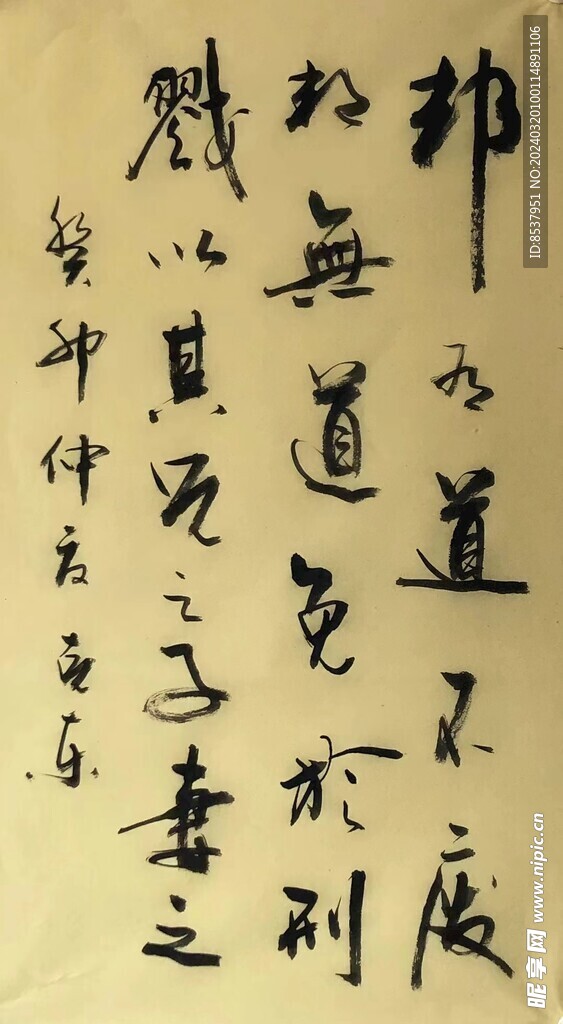 邦有道不废
邦無道免於刑
戮以其兄之子妻之
癸卯仲夏克东
ID:8537951 NO:20240320100114891106
昵享网 www.nipic.cn